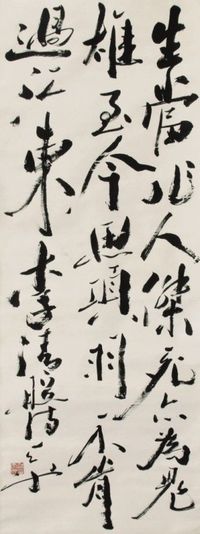 生當作人傑死亦為鬼
雄至今思項羽不肯
過江東李清照詩